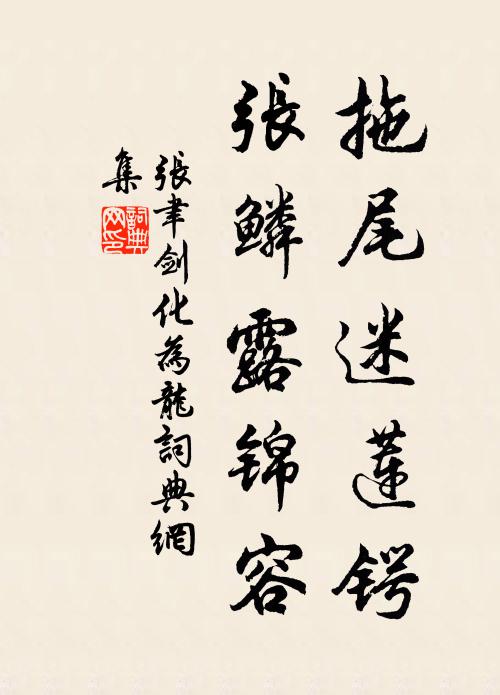 拖尾迷蓮锷
張鱗露锦容
張聿剑化為龍詞典網
集
詞典网印